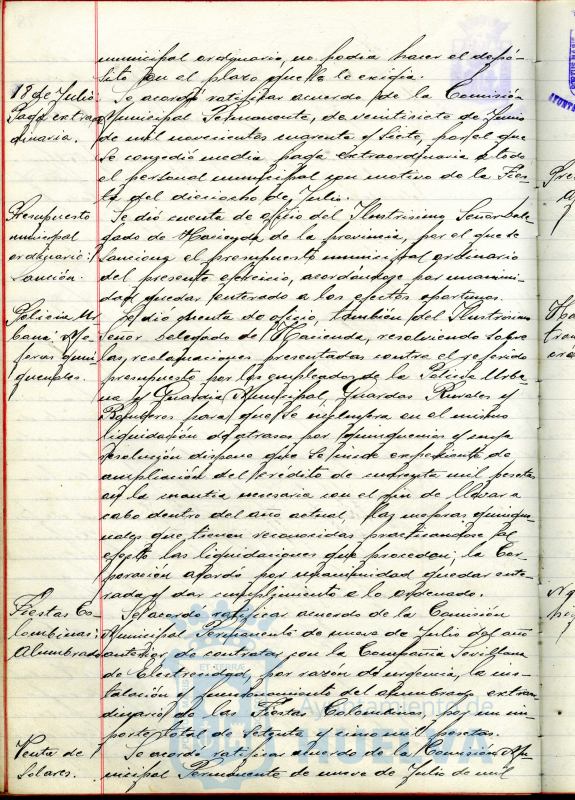 municipal ordinario, no podia hacer el depó-
sito en el plazo que se le exigia.
18 de Julio
Paga extraor
dinaria.
Se acordó ratificar acuerdo de la Comisión
Municipal Permanente, de veintisiete de Junio
de mil novecientos cuarenta y siete, por el que
se concedió media paga extraordinaria a todo
el personal municipal con motivo de la Fies-
ta del dieciocho de Julio.
Presupuesto
municipal
ordinario:
Sanción.
Se dió cuenta de oficio del Ilustrisimo Señor Dele-
gado de Hacienda de la provincia, por el que se
sanciona el presupuesto municipal ordinario
del presente ejercicio, acordándose por unanimi-
dad quedar enterado a los efectos oportunos.
Policia Ur-
bana. Me-
joras quin-
quenales.
Se dió cuenta de oficio, también del Ilustrisimo
Señor Delegado de Hacienda, resolviendo sobre
las reclamaciones presentadas contra el referido
presupuesto por los empleados de la Policia Urba-
na y Guardia Municipal, Guardas Rurales y
Bomberos para que se incluyera en el mismo
liquidación de atrasos por quinquenios y cuya
resolución dispone que se incoe expediente de
ampliación del crédito de cuarenta mil pesetas
en la cuantia necesaria con el fin de llevar a
cabo dentro del año actual, las mejoras quinque-
nales que tienen reconocidas practicandose al
efecto las liquidaciones que procedan; la Cor-
poración acordó por unanimidad quedar ente-
rada y dar cumplimiento a lo ordenado.
Fiestas Co-
lombinas:
Alumbrado
Se acordó ratificar acuerdo de la Comisión
Municipal Permanente de nueve de Julio del año
anterior de contratar con la Compañia Sevillana
de Electricidad, por razón de urgencia, la ins-
talación y funcionamiento del alumbrado extraor-
dinario de las Fiestas Colombinas, por un im-
porte total de setenta y cinco mil pesetas.
Venta de
Solares.
Se acordó ratificar acuerdo de la Comisión Mu-
nicipal Permanente de nueve de Julio de mil
Ayuntamiento de
HUELVA